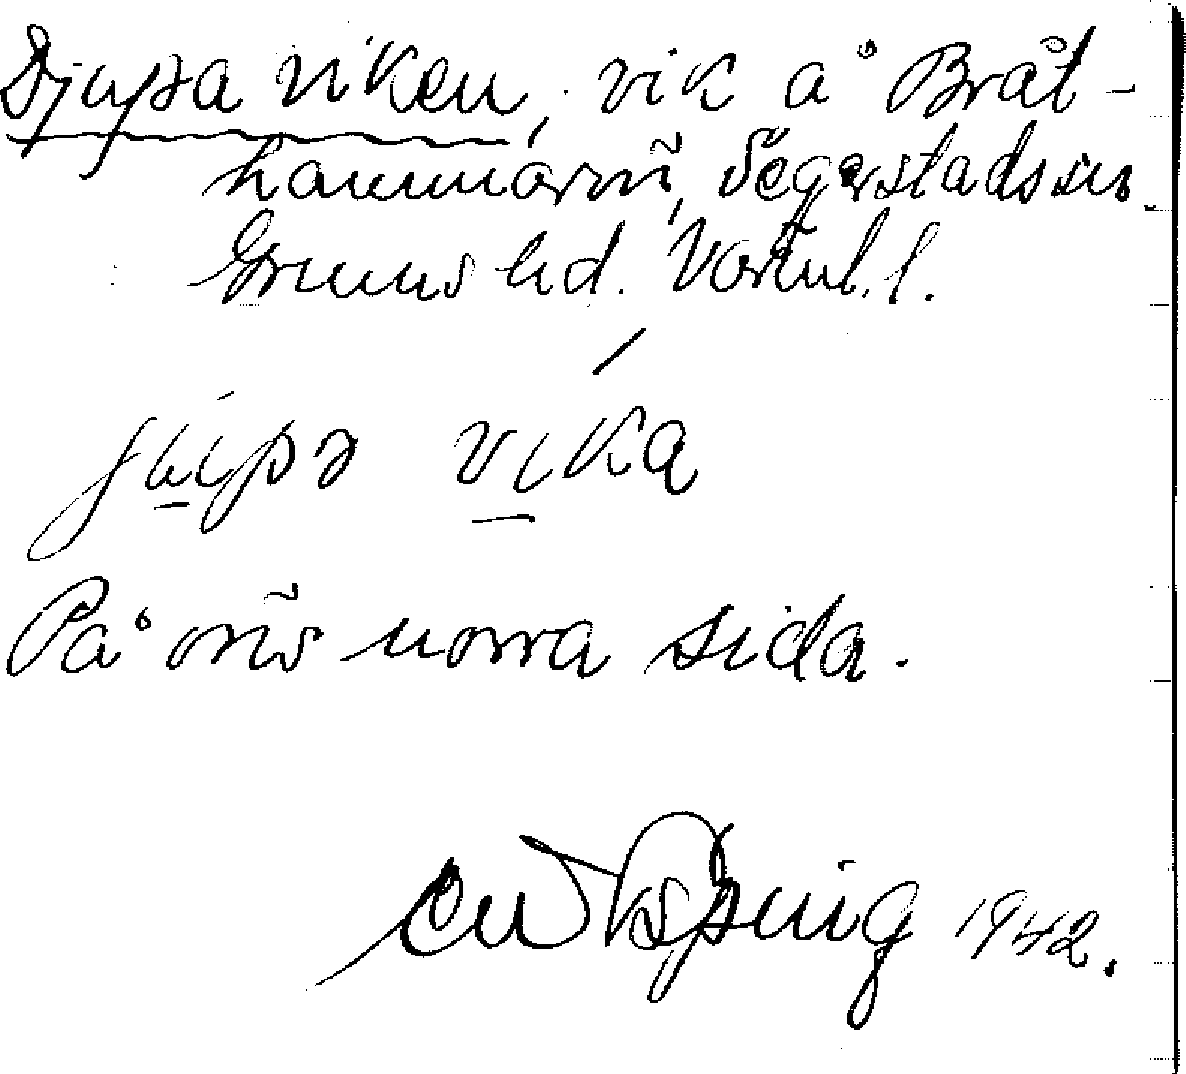 Djupa viken, vik å Bråt-
hammarn̄, Segerstads sn.
Grums hd. Värml. l.
jupə vika
På ōns norra sida.
1942.